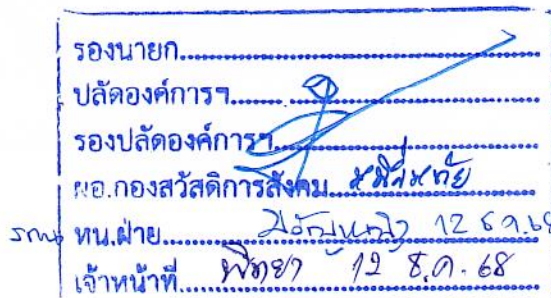 รองนายก
ปลัดองค์การฯ
รองปลัดองค์การฯ
ผอ.กองสวัสดิการสังคม
หน.ฝ่าย 12 ธ.ค. 68
เจ้าหน้าที่ พิทยา 12 ธ.ค. 68